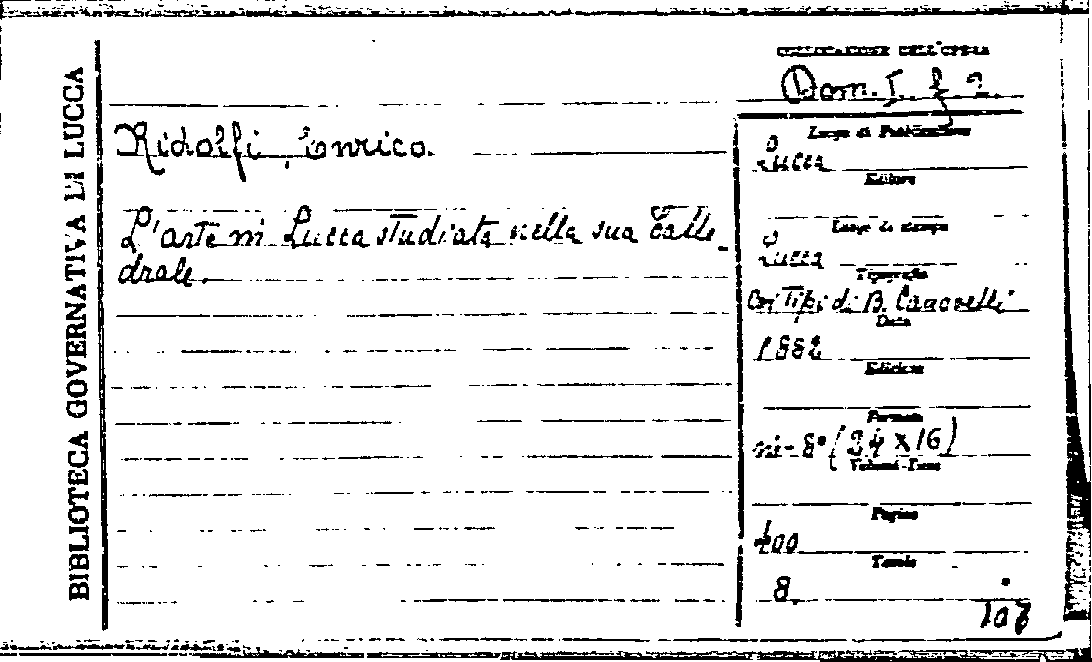 BIBLIOTECA GOVERNATIVA DI LUCCA
COLLOCAZIONE DELL'OPERA
Dom. I. f 2.
Ridolfi, Enrico.
L'arte in Lucca studiata nella sua Catte-
drale.
Luogo di Pubblicazione
Lucca
Editore
Luogo di stampa
Lucca
Tipografia
Coi Tipi di B. Canovetti
Data
1882
Edizione
Formato
in-8° (24 x 16)
Volumi-Tomi
Pagine
400
Tavole
8.